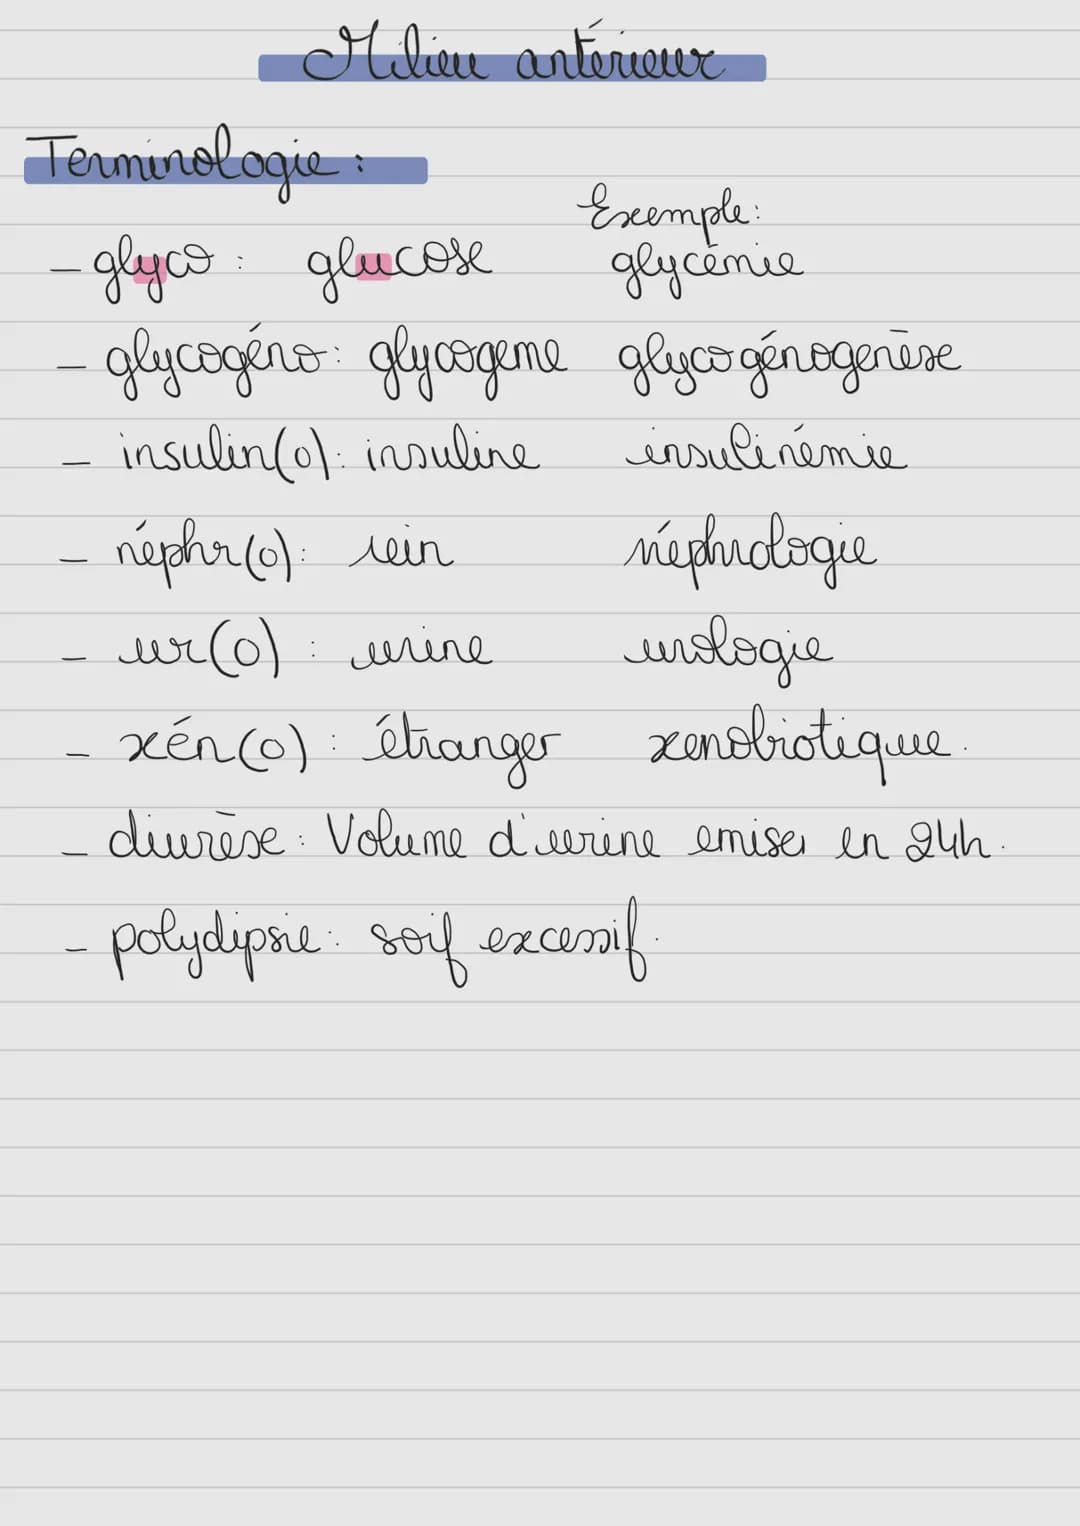 Milieu antérieur
Terminologie :
Exemple :
- glyco : glucose glycémie
- glycogéno : glycogème glycogénogenèse
- insulin(o) : insuline insulinémie
- néphr(o) : rein néphrologie
- ur(o) : urine urologie
- xén(o) : étranger xenobiotique.
- diurèse : Volume d'urine emise en 24h.
- polydipsie : soif excessif.